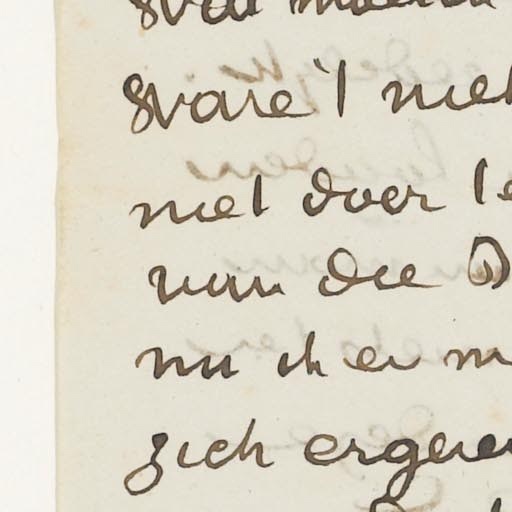 zware 't niet
niet door te
van die D
nu ik er m
zich ergeren